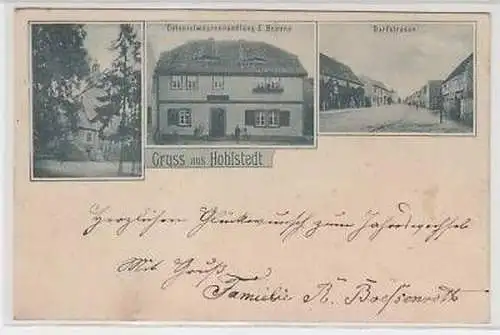 Colonialwarenhandlung E. Beyere
Dorfstrasse
Gruss aus Hohlstedt
Herzlichen Glückwunsch zum Jahreswechsel
Mit Gruß
Familie R.